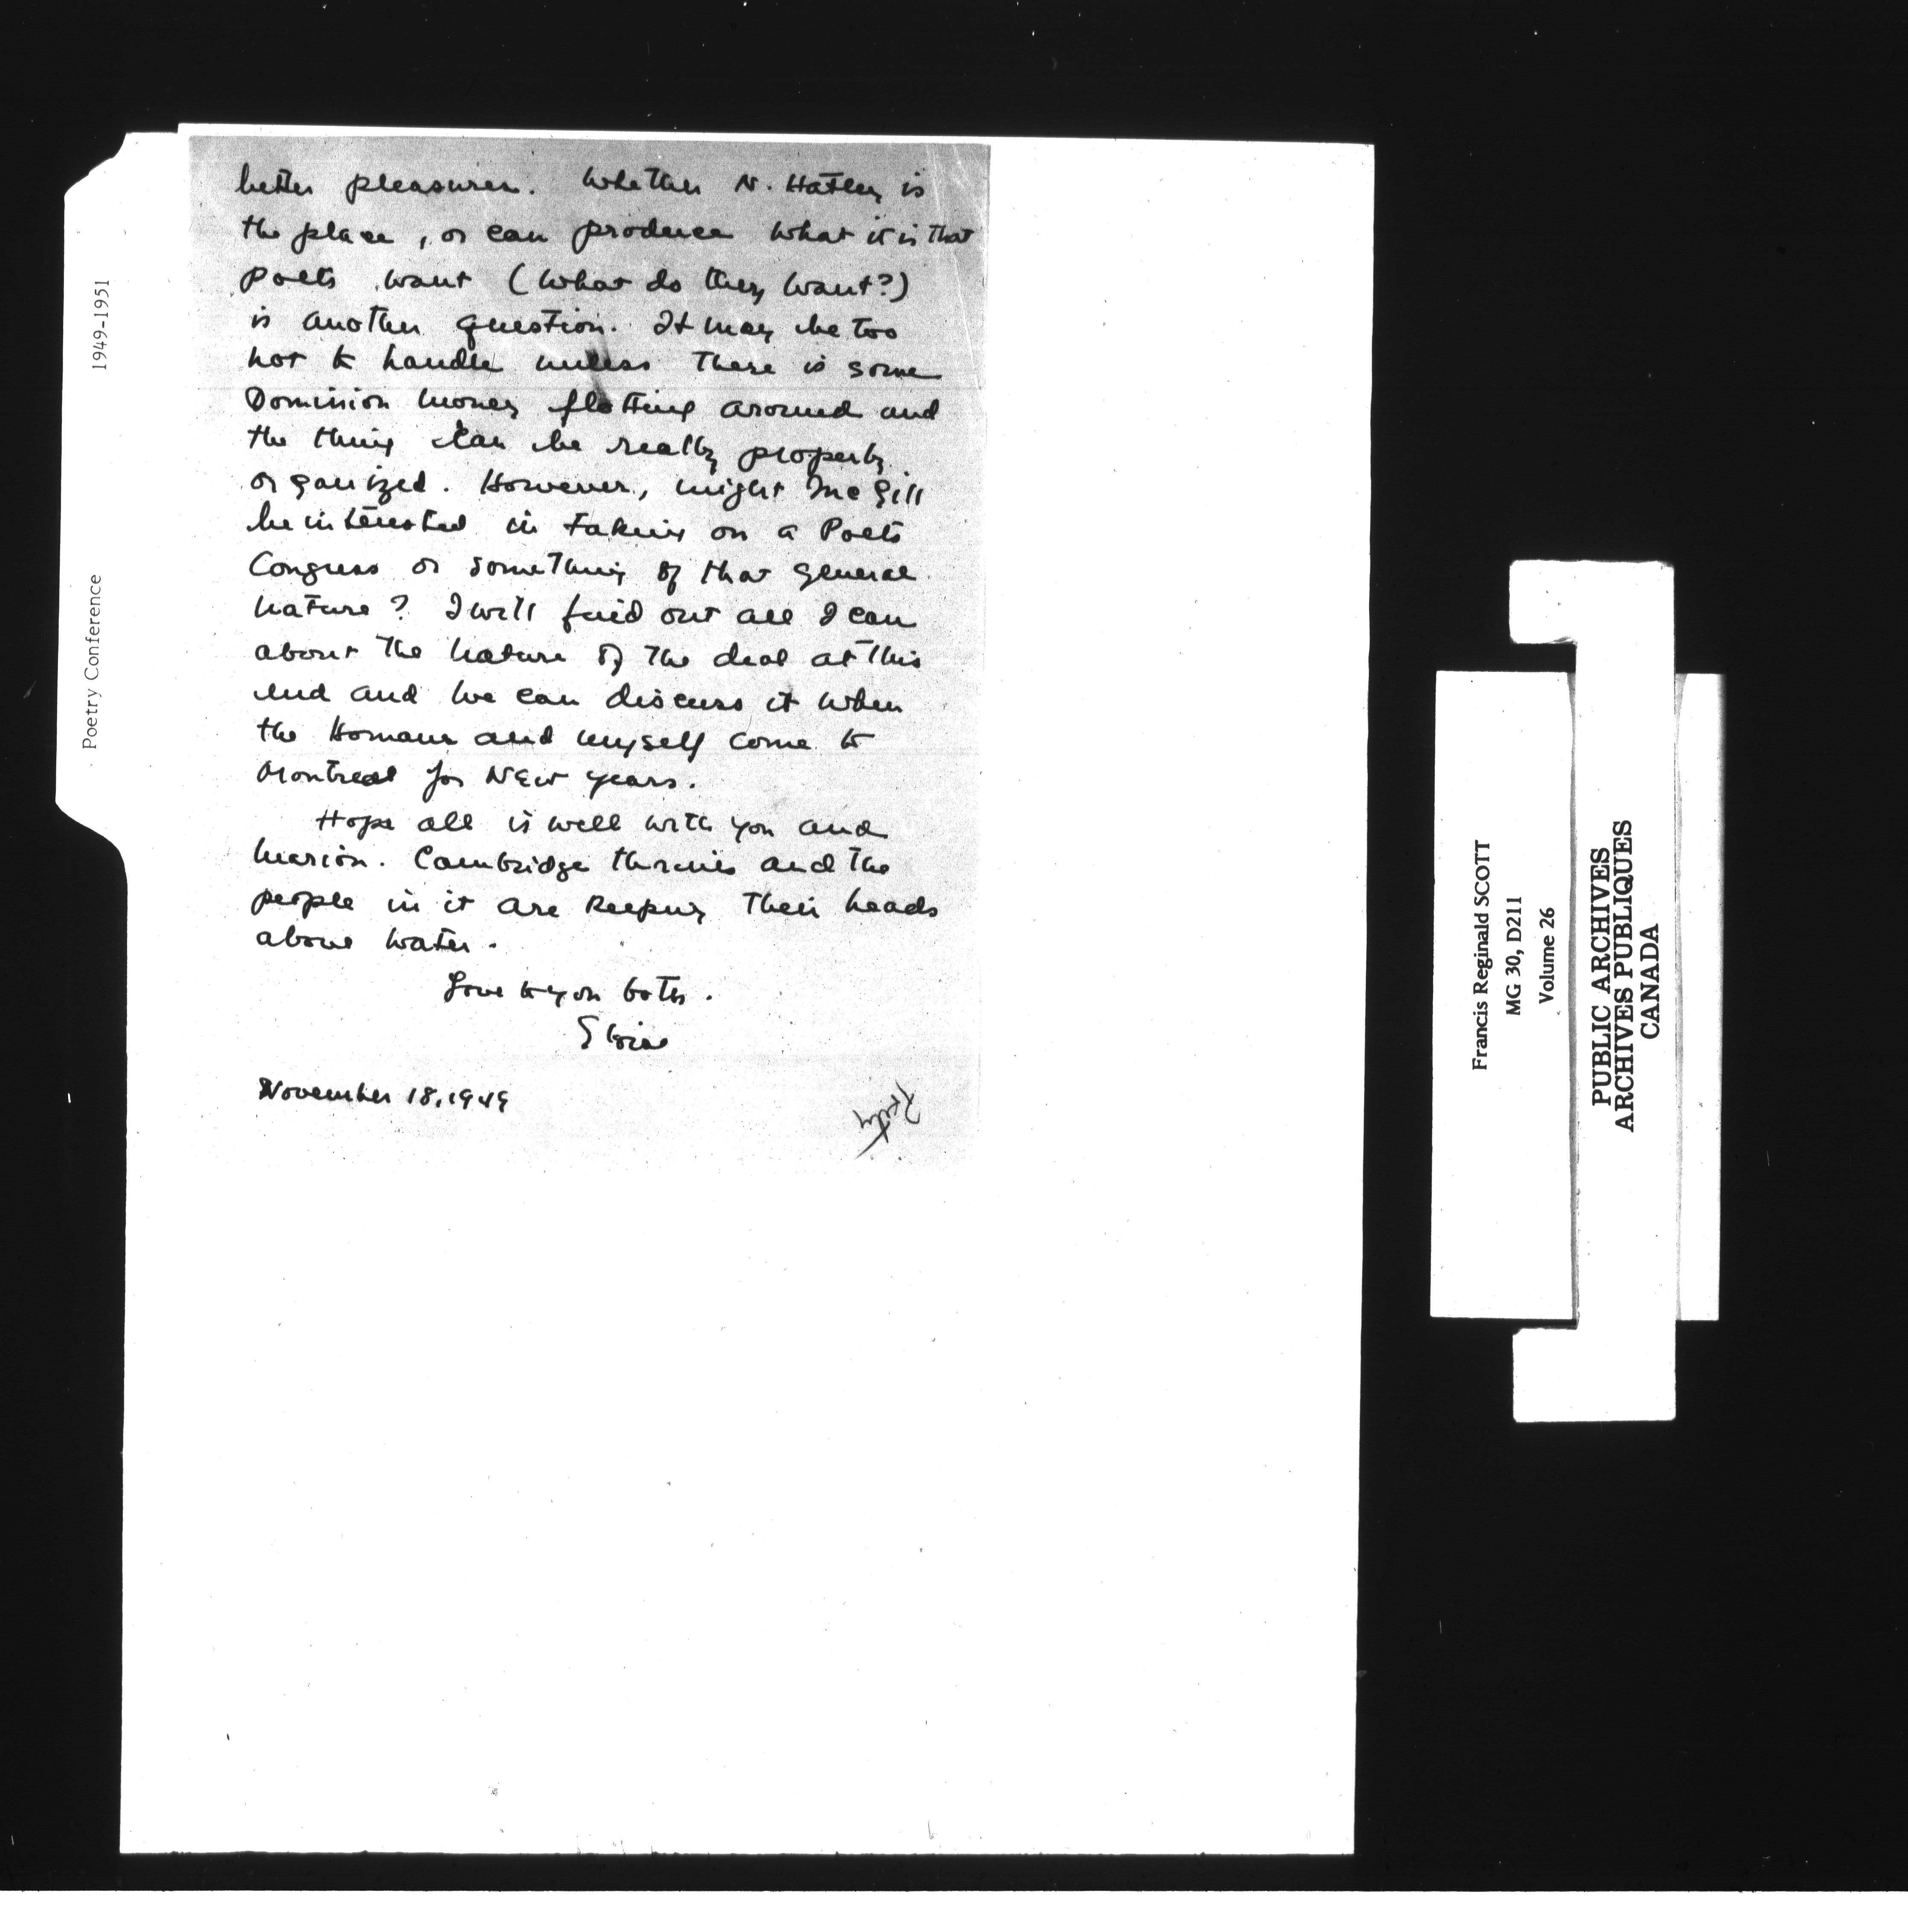 better pleasures. Whether N. Hatley is
the place, or can produce what it is that
poets want (what do they want?)
is another question. It may be too
hot to handle unless there is some
Dominion money flotting around and
the thing can be really properly
organized. However, might McGill
be interested in taking on a Poets
Congress or something of that general
nature? I will find out all I can
about the nature of the deal at this
end and we can discuss it when
the Homans and myself come to
Montreal for New Years.
Hope all is well with you and
Marion. Cambridge thrives and the
people in it are keeping their heads
above water.
Love to you both.
November 18, 1949
Poetry Conference
1949-1951
Francis Reginald SCOTT
MG 30, D211
Volume 26
PUBLIC ARCHIVES
ARCHIVES PUBLIQUES
CANADA